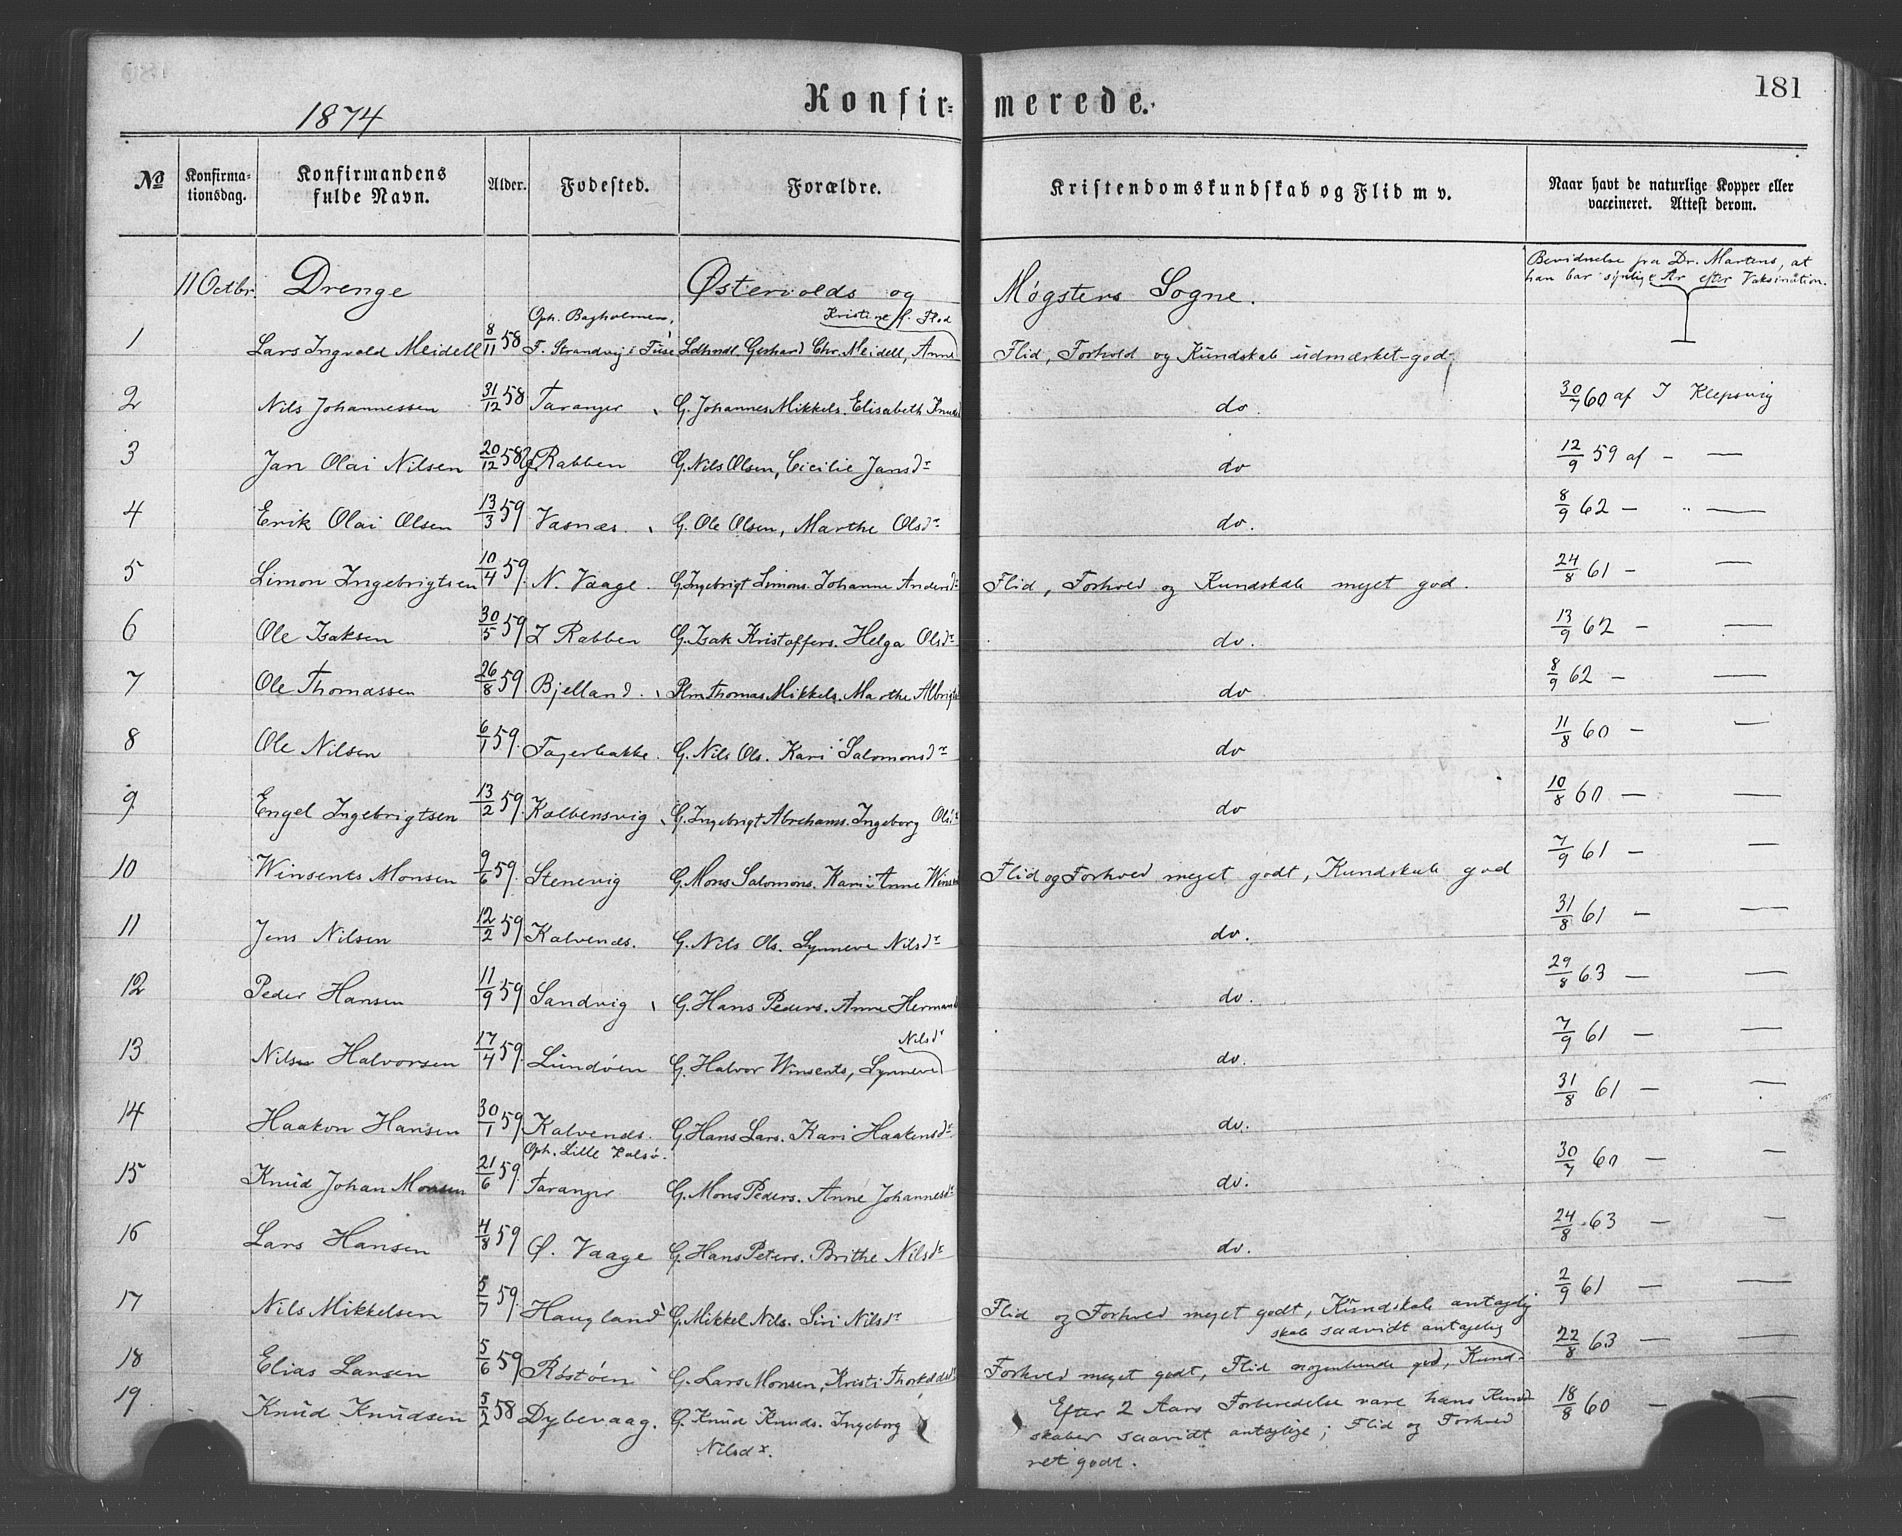 181
1874 Konfir= merede.
№ Konfirma- Konfirmandens Alder. Fødested. Forældre. Kristendomskundskab og Flid m v. Naar havt de naturlige Kopper eller
tionsdag. fulde Navn. vaccineret. Attest derom.
Bevidnelse fra Dr. Martens, at
han bar synlige Ar efter Vaksination.
11 Octbr. Drenge Østervolds og Møgsters Sogne.
Oph. Bagholmen, Kristine f. Flod
1 Lars Ingvald Meidell 8/11 58 F. Strandvig i Fuse Ldhndl. Gerhard Chr. Meidell, Anne Flid, Forhold og Kundskab udmærket-god
2 Nils Johannessen 31/12 58 Taranger G. Johannes Mikkels. Elisabeth Knuds do. 30/7 60 af I Klepsvig
3 Jan Olai Nilsen 20/12 58 Rabben G. Nils Olsen, Cicilie Jansdr do 12/9 59 af - —
4 Erik Olai Olsen 13/3 59 Vasnæs. G. Ole Olsen, Marthe Olsdr do. 8/9 62 — " —
5 Simon Ingebrigtsen 10/4 59. N. Vaage. G. Ingebrigt Simons. Johanne Andersdr Flid, Forhold og Kundskab meget god. 24/8 61 — —
6 Ole Isaksen 30/5 59 Z Rabben G. Isak Kristoffers. Helga Olsdr do. 13/9 62 — —
7 Ole Thomassen 26/8 59 Bjelland. Plm Thomas Mikkels. Marthe Albrigts do 8/9 62 — —
8 Ole Nilsen 6/1 59. Fagerbakke. G. Nils Ols. Kari Salomonsdr do 11/8 60 — —
9 Engel Ingebrigtsen 13/2 59. Kolbensvig G. Ingebrigt Abrahams. Ingeborg Olsdr do 10/8 60 — —
10 Winsents Monsen 9/6 59. Stenevig G. Mons Salomons. Kari Anne Winsents Flid og Forhold meget godt, Kundskab god 7/9 61 — —
11 Jens Nilsen 12/2 59 Kalvenæs. G. Nils Ols. Synneve Nilsdr do. 31/8 61 — —
12 Peder Hansen 11/9 59 Sandvig G. Hans Peders. Anne Hermands do. 29/8 63 — —
Nilsdr
13 Nils Halvorsen 17/4 59. Lundøen G. Halvor Winsents, Synneve do. 7/9 61 — —
14 Haakon Hansen 30/1 59 Kalvenæs. G. Hans Lars. Kari Haakensdr do. 31/8 61 — —
Oph. Lille Kalsø.
15 Knud Johan Monsen 21/6 59. Taranger G. Mons Peders. Anne Johannesdr do. 30/7 60 — —
16 Lars Hansen 4/8 59 Ø. Vaage G. Hans Peters. Brithe Nilsdr do. 24/8 63 — —
17 Nils Mikkelsen 5/7 59. Haugland G. Mikkel Nils. Siri Nilsdr Flid og Forhold meget godt, Kundskab antagelig 2/9 61 — —
skab saavidt antagelig
18 Elias Larsen 5/6 59 Røstøen G. Lars Monsen, Kristi Thorkildsdr Forhold meget godt, Flid nogenlunde god, Kund- 22/8 63 — —
19 Knud Knudsen 5/2 58 Dybevaag. G. Knud Knuds. Ingeborg Efter 2 Aars Forberedelse vare hans Kund 18/8 60 — —
Nilsdr. skaber saavidt antagelige; Flid og Forhold
ret godt.